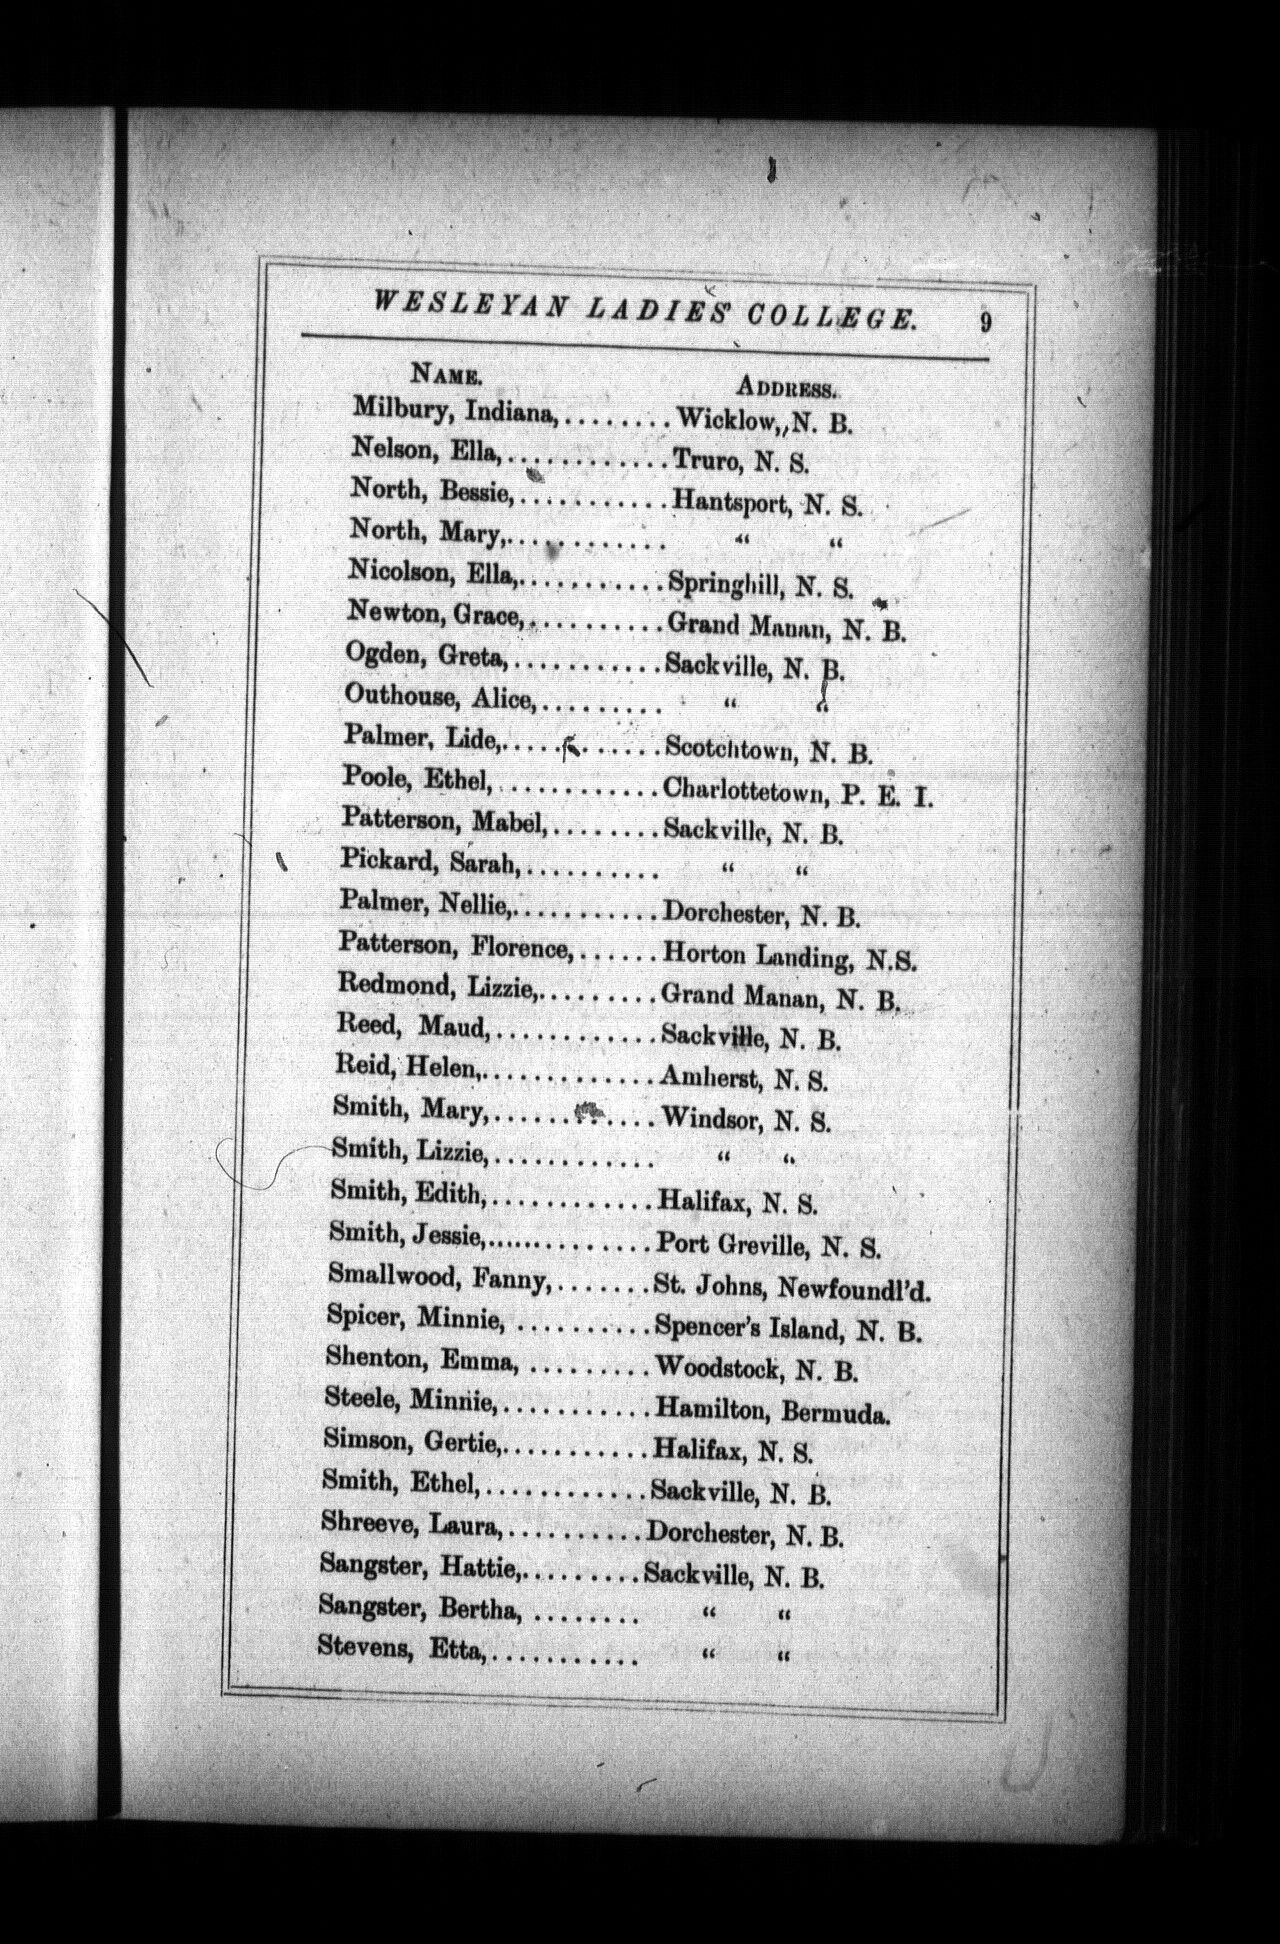 WESLEYAN LADIES' COLLEGE. 9
NAME. ADDRESS.
Milbury, Indiana,........Wicklow, N. B.
Nelson, Ella,............Truro, N. S.
North, Bessie,...........Hantsport, N. S.
North, Mary,............ " "
Nicolson, Ella,...........Springhill, N. S.
Newton, Grace,..........Grand Manan, N. B.
Ogden, Greta,...........Sackville, N. B.
Outhouse, Alice,......... " "
Palmer, Lide,............Scotchtown, N. B.
Poole, Ethel,............Charlottetown, P. E. I.
Patterson, Mabel,........Sackville, N. B.
Pickard, Sarah,.......... " "
Palmer, Nellie,...........Dorchester, N. B.
Patterson, Florence,......Horton Landing, N.S.
Redmond, Lizzie,.........Grand Manan, N. B.
Reed, Maud,............Sackville, N. B.
Reid, Helen,.............Amherst, N. S.
Smith, Mary,............Windsor, N. S.
Smith, Lizzie,............ " "
Smith, Edith,............Halifax, N. S.
Smith, Jessie,..............Port Greville, N. S.
Smallwood, Fanny,.......St. Johns, Newfoundl'd.
Spicer, Minnie, ..........Spencer's Island, N. B.
Shenton, Emma, .........Woodstock, N. B.
Steele, Minnie,...........Hamilton, Bermuda.
Simson, Gertie,...........Halifax, N. S.
Smith, Ethel,............Sackville, N. B.
Shreeve, Laura,..........Dorchester, N. B.
Sangster, Hattie,.........Sackville, N. B.
Sangster, Bertha, ........ " "
Stevens, Etta,........... " "